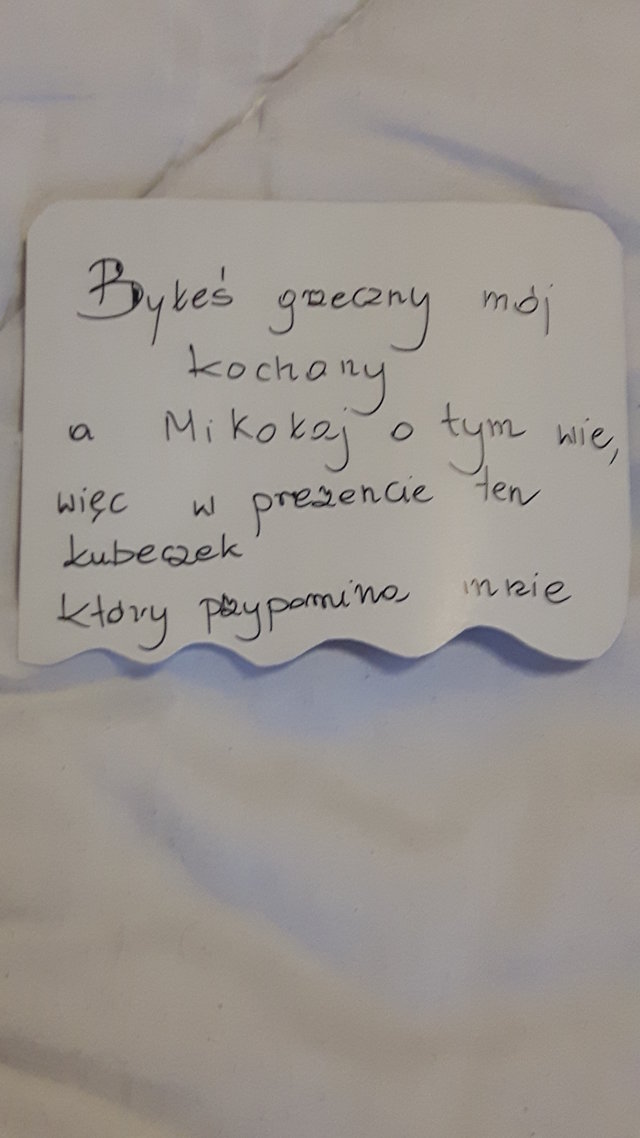 Byłeś grzeczny mój
kochany
a Mikołaj o tym wie,
więc w prezencie ten
kubeczek
który przypomina mnie